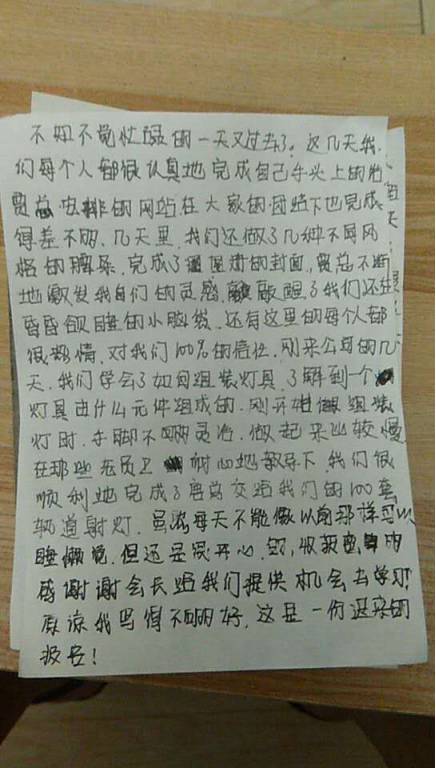 不知不觉忙碌的一天又过去了。这几天我
们每个人都很认真地完成自己手头上的
总安排的网站在大家的团结下也完成
得差不多。几天里,我们还做了几种不同风
格的 完成了 的封面。贾总不断
地激发我们的灵感,敲醒了我们还在
昏昏欲睡的小脑袋,还有这里的每个人都
很热情,对我们100%的信任。刚来公司的几
天,我们学会了如何组装灯具,了解到一个
灯具由什么元件组成的。刚开始做组装
灯时,手脚不够灵活,做起来比较慢
在那些老员工 耐心地教导下我们很
顺利地完成了唐总交给我们的100套
轨道射灯。虽然每天不能像以前那样可以
睡懒觉,但还是很开心的,收获
感谢谢会长给我们提供机会去学习
原谅我写得不够好,这是一份迟来的
报告!